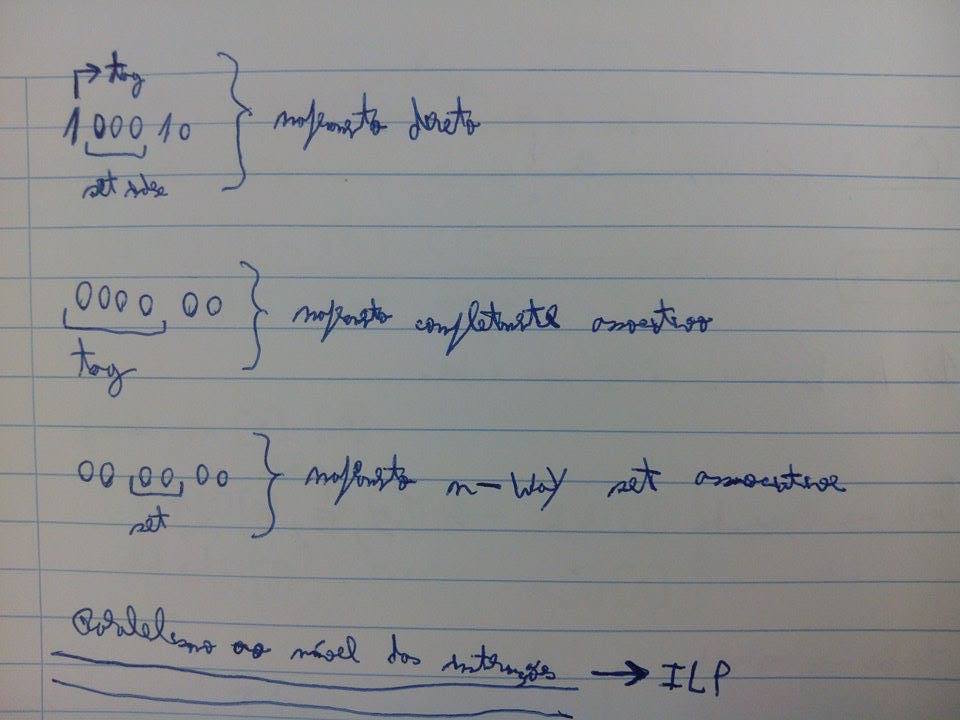 → tag
1 000 10 } mapeamento direto
set index
0000 00 } mapeamento completamente associativo
tag
00 00 00 } mapeamento n-way set associative
set
Paralelismo ao nível das instruções → ILP